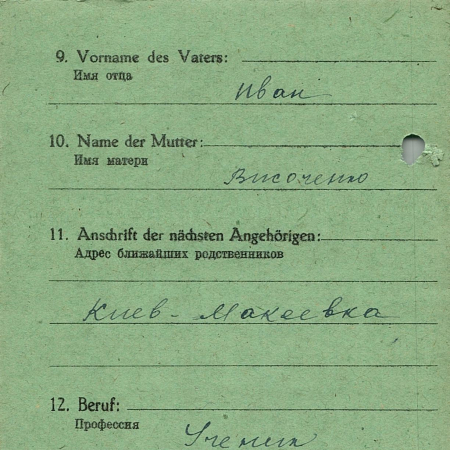 9. Vorname des Vaters:
Имя отца
Иван
10. Name der Mutter:
Имя матери
Височенко
11. Anschrift der nächsten Angehörigen:
Адрес ближайших родственников
Киев - Макеевка
12. Beruf:
Профессия
Ученик